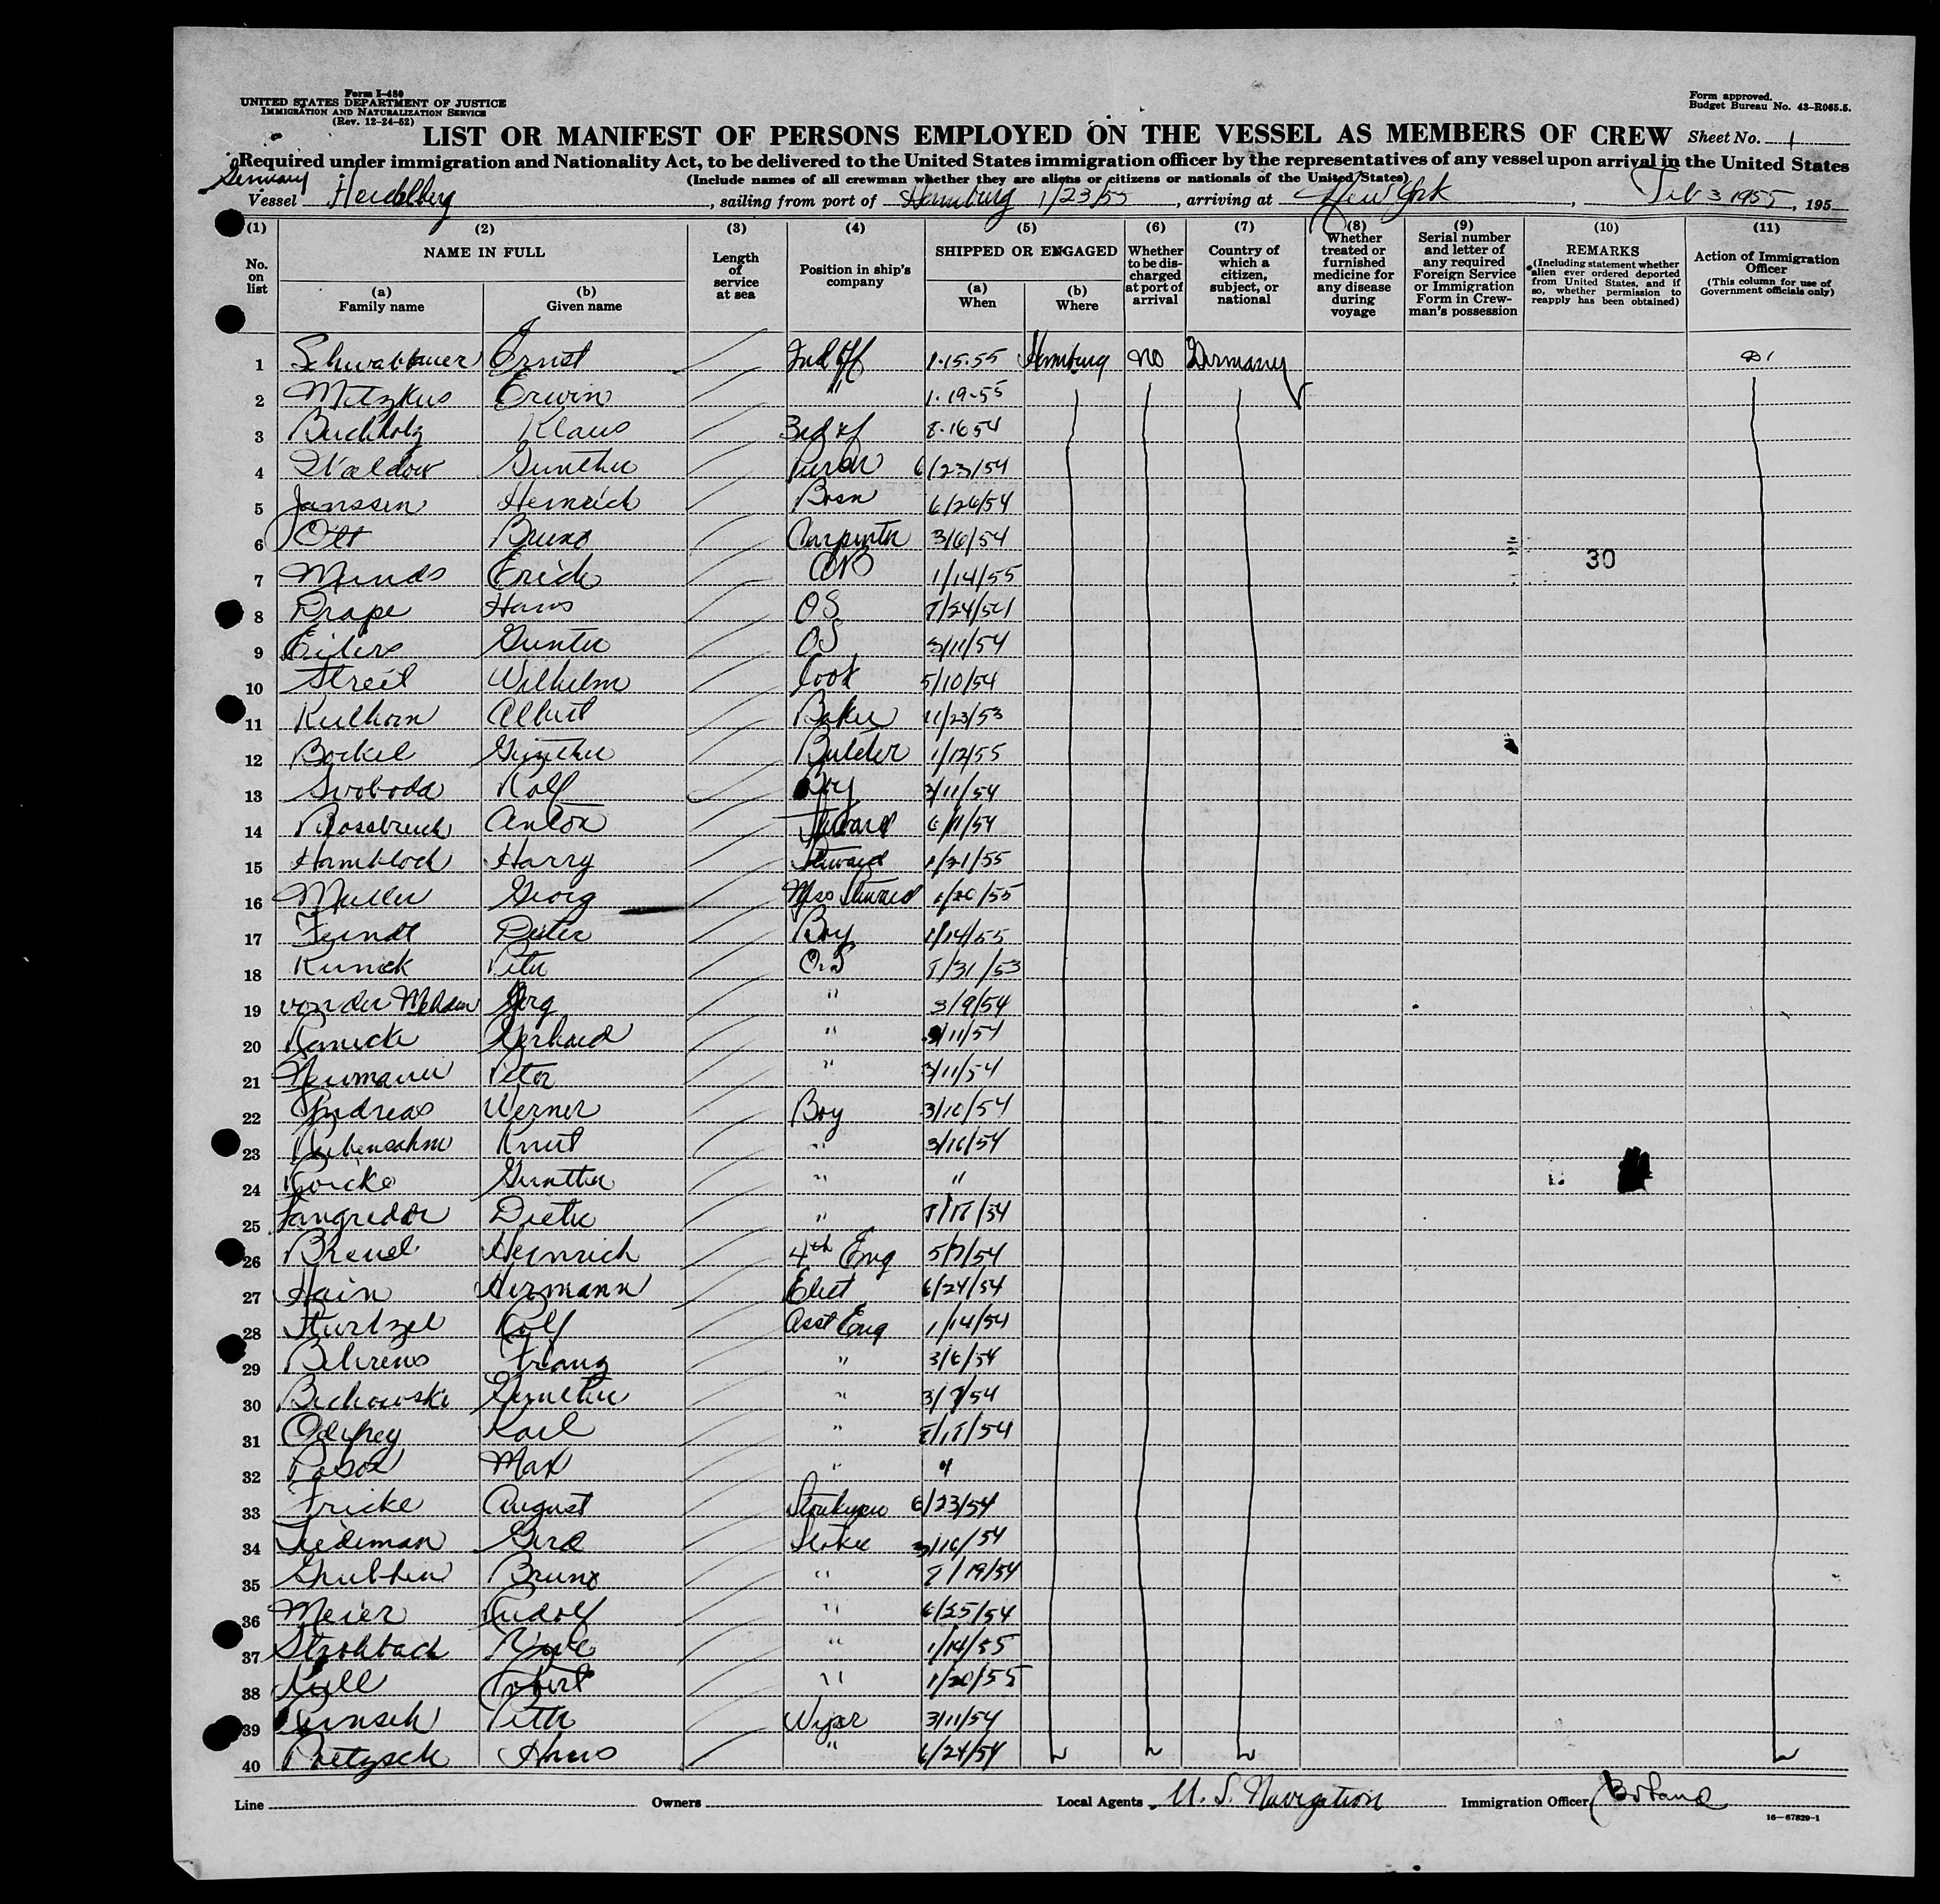 Form I-480
UNITED STATES DEPARTMENT OF JUSTICE
IMMIGRATION AND NATURALIZATION SERVICE
(Rev. 12-24-52)
Form approved.
Budget Bureau No. 43-R065.5.
LIST OR MANIFEST OF PERSONS EMPLOYED ON THE VESSEL AS MEMBERS OF CREW
Sheet No. 1
Required under immigration and Nationality Act, to be delivered to the United States immigration officer by the representatives of any vessel upon arrival in the United States
(Include names of all crewman whether they are aliens or citizens or nationals of the United States)
Germany
Vessel Heidelberg, sailing from port of Hamburg 1/23/55, arriving at New York, Feb 3 1955, 195
(1) No. on list
(2) NAME IN FULL
(a) Family name
(b) Given name
(3) Length of service at sea
(4) Position in ship's company
(5) SHIPPED OR ENGAGED
(a) When
(b) Where
(6) Whether to be discharged at port of arrival
(7) Country of which a citizen, subject, or national
(8) Whether treated or furnished medicine for any disease during voyage
(9) Serial number and letter of any required Foreign Service or Immigration Form in Crewman's possession
(10) REMARKS
(Including statement whether alien ever ordered deported from United States, and if so, whether permission to reapply has been obtained)
(11) Action of Immigration Officer
(This column for use of Government officials only)
1 Ernst 2nd Off 1-15-55 Hamburg no Germany
2 Mitzkus Erwin " 1-19-55
3 Buchholz Klaus 3rd of 8-16 54
4 Waldow Gunther Purser 6/23/54
5 Janssen Heinrich Bosn 6/26/54
6 Ott Bruno Carpenter 3/6/54
7 Erich 1/14/55
30
8 Prape Hans OS
9 Eilers Gunter OS 3/11/54
10 Streit Wilhelm Cook 5/10/54
11 Keilhorn Albert Baker 11/23/53
12 Bockel Gunther 1/12/55
13 Svoboda Rolf Boy 3/11/54
14 Anton Steward 6/11/54
15 Hambloch Harry Steward 1/21/55
16 Muller Georg Mess Steward 1/20/55
17 Dieter Boy 1/14/55
18 Kunick Peter
19 von der Mehden 3/9/54
20 Gerhard "
21 Neumann Peter " 3/11/54
22 Andreas Werner Boy 3/10/54
23 Rubensahm Knut " 3/16/54
24 Gunther " "
25 Dieter "
26 Breuel Heinrich 4th Eng 5/7/54
27 Hain Hermann Elect 6/24/54
28 Sturtzel Rolf Asst Eng 1/14/54
29 Behrens Franz " 3/6/54
30 Bechowski Gunther "
31 Karl "
32 Max " "
33 Fricke August Storekeeper 6/23/54
34 Tiedeman Gerd Stoker 3/16/54
35 Bruno "
36 Meier Rudolf " 6/25/54
37 Strohbach " 1/14/55
38 Robert " 1/20/55
39 Peter Wiper 3/11/54
40 Poetzsch Hans " 6/24/54
Line
Owners
Local Agents U. S. Navigation
Immigration Officer
16—67829-1